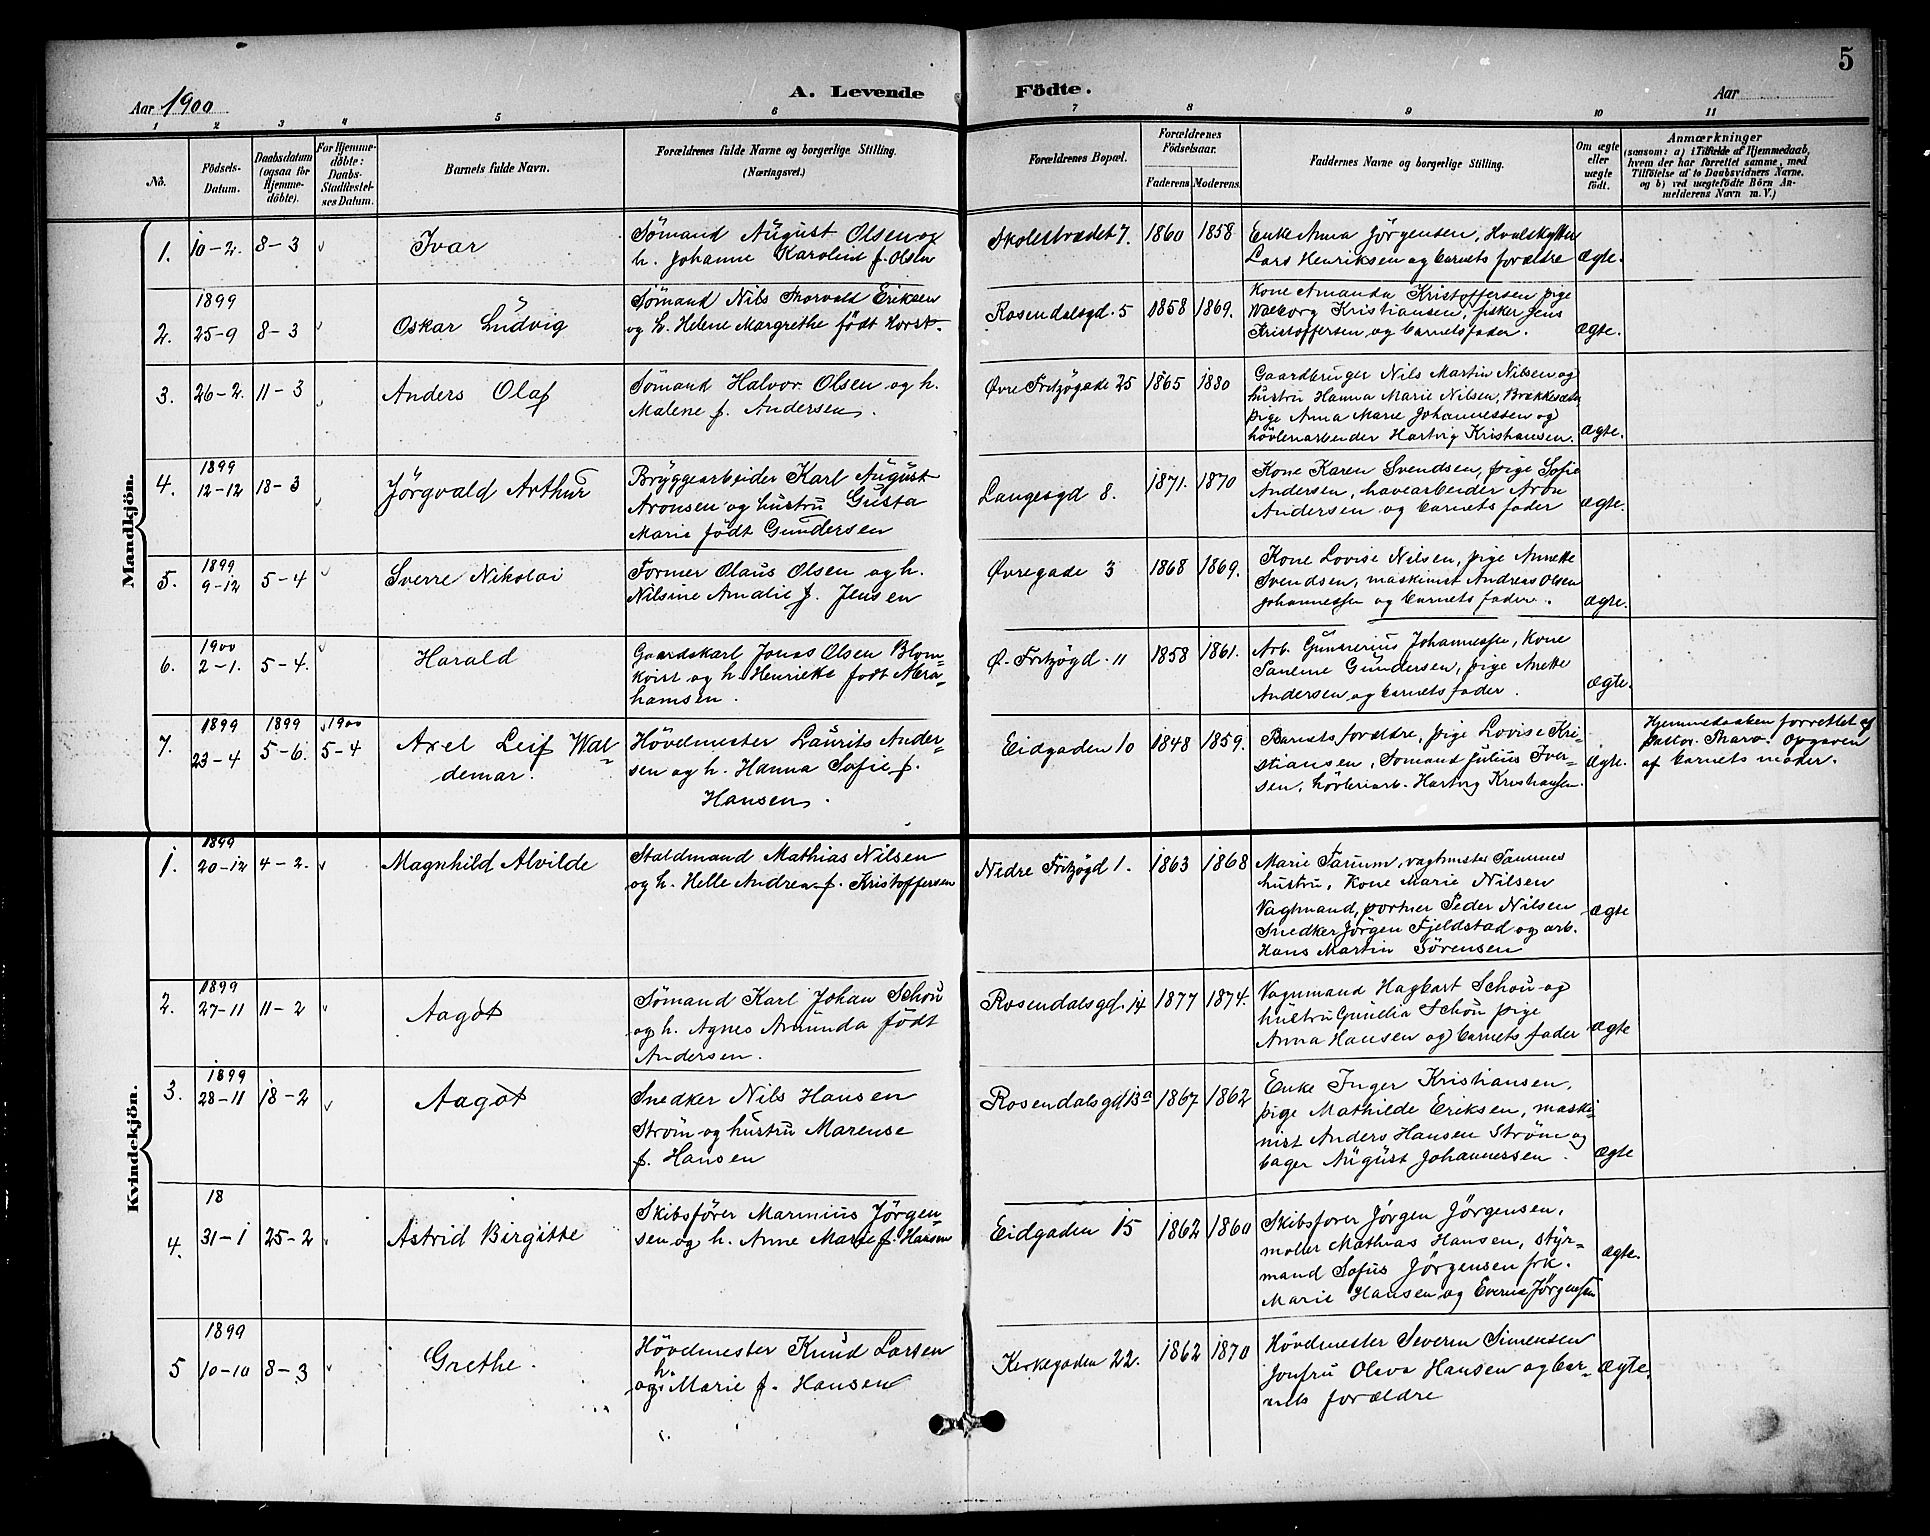 5
Aar 1900
A. Levende Födte.
Aar
1 2 3 4 5 6 7 8 9 10 11
No.
Födsels-Datum.
Daabsdatum (ogsaa for Hjemmedöbte).
For Hjemmedöbte: Daabs-Stadfæstelses Datum.
Barnets fulde Navn.
Forældrenes fulde Navne og borgerlige Stilling.
(Næringsvei.)
Forældrenes Bopæl.
Forældrenes Födselsaar.
Faderens. Moderens.
Faddernes Navne og borgerlige Stilling.
Om ægte eller uægte födt.
Anmærkninger
(saasom: a) i Tilfælde af Hjemmedaab,
hvem der har forrettet samme, med
Tilföielse af to Daabsvidners Navne,
og b) ved uægtefödte Börn An-
melderens Navn m. V.)
Mandkjön.
1. 10-2. 8-3 Ivar
Sömand August Olsen og
h. Johanne Karoline f. Olsen
Skolestrædet 7. 1860 1858
Enke Anna Jørgensen, Hvalskytter
Lars Henriksen og barnets forældre
Ægte.
2. 1899
25-9 8-3 Oskar Ludvig
Sømand Nils Thorvald Eriksen
og h. Helene Margrethe født Horst.
Rosendalsgd. 5 1858 1869.
Kone Amanda Kristoffersen pige
Valborg Kristiansen, fisker Jens
Kristoffersen og barnets fader.
Ægte.
3. 26-2. 11-3 Anders Olaf
Sømand Halvor Olsen og h.
Malene f. Andersen.
Øvre Fritzøgade 25 1865 1880
Gaardbruger Nils Martin Nilsen og
hustru Hanna Marie Nilsen,
pige Anna Marie Johannessen og
høvleriarbeider Hartvig Kristiansen.
Ægte.
4. 1899
12-12 18-3 Jörgvald Arthur
Bryggearbeider Karl August
Aronsen og hustru Gusta
Marie født Gundersen
Langesgd 8. 1871. 1870
Kone Karen Svendsen, pige Sofie
Andersen, havearbeider Aron
Andersen og barnets fader
Ægte.
5. 1899
9-12 5-4 Sverre Nikolai
Former Olaus Olsen og h.
Nilsine Amalie f. Jensen
Øvregade 3 1868 1869.
Kone Lovise Nilsen, pige Annette
Svendsen, maskinist Andreas Olsen
Johannessen og barnets fader.
Ægte.
6. 1900
2-1. 5-4. Harald
Gaardskarl Jonas Olsen Blom-
kvist og h. Henriette født Abra-
hamsen.
Ø. Fritzøgd. 11 1858 1861.
Arb. Gunnerius Johannessen, Kone
Gundersen, pige Anette
Andersen og barnets fader.
Ægte.
7. 1899 1899 1900
23-4 5-6. 5-4 Axel Leif Wal-
demar.
Hövedmester Laurits Ander-
sen og h. Hanna Sofie f.
Hansen.
Eidgaden 10 1848 1859.
Barnets forældre, pige Lovise Kri-
stiansen, Sømand Julius Iver-
sen, høvleriarb. Hartvig Kristiansen.
Ægte.
Hjemmedaaben forrettet af
pastor. Opgaven
af barnets moder.
Kvindekjön.
1. 1899
20-12 4-2. Magnhild Alvilde
Staldmand Mathias Nilsen
og h. Helle Andrea f. Kristoffersen
Nedre Fritzøgd 1. 1863 1868
Marie, vagtmester
hustru, Kone Marie Nilsen
Vagtmand, portner Peder Nilsen
Snedker Jörgen Fjeldstad og arb.
Hans Martin Sørensen
Ægte
2. 1899
27-11 11-2 Aagot
Sømand Karl Johan Schou
og h. Agnes Amunda födt
Andersen.
Rosendalsgd. 14 1877 1874.
Vognmand Hagbart Schou og
hustru Gunelia Schou pige
Anna Hansen og barnets fader
Ægte
3. 1899
28-11 18-2 Aagot
Snedker Nils Hansen
Strøm og hustru Marense
f. Hansen
Rosendalsgd 13a 1867 1862
Enke Inger Kristiansen,
pige Mathilde Eriksen, maski-
nist Anders Hansen Strøm og
bager August Johannessen.
Ægte
4. 18
31-1 25-2 Astrid Birgitte
Skibsfører Marinius Jørgen-
sen og h. Anne Marie f. Hansen
Eidgaden 15 1862 1860
Skibsfører Jørgen Jørgensen,
møller Mathias Hansen, styr-
mand Sofus Jørgensen frk.
Marie Hansen og Jørgensen
Ægte.
5 1899
10-10 8-3 Grethe.
Hövedmester Knud Larsen
og h. Marie f. Hansen
Kirkegaden 22. 1862 1870
Hövedmester Severin Simensen
Jomfru Olava Hansen og bar-
nets forældre
Ægte.